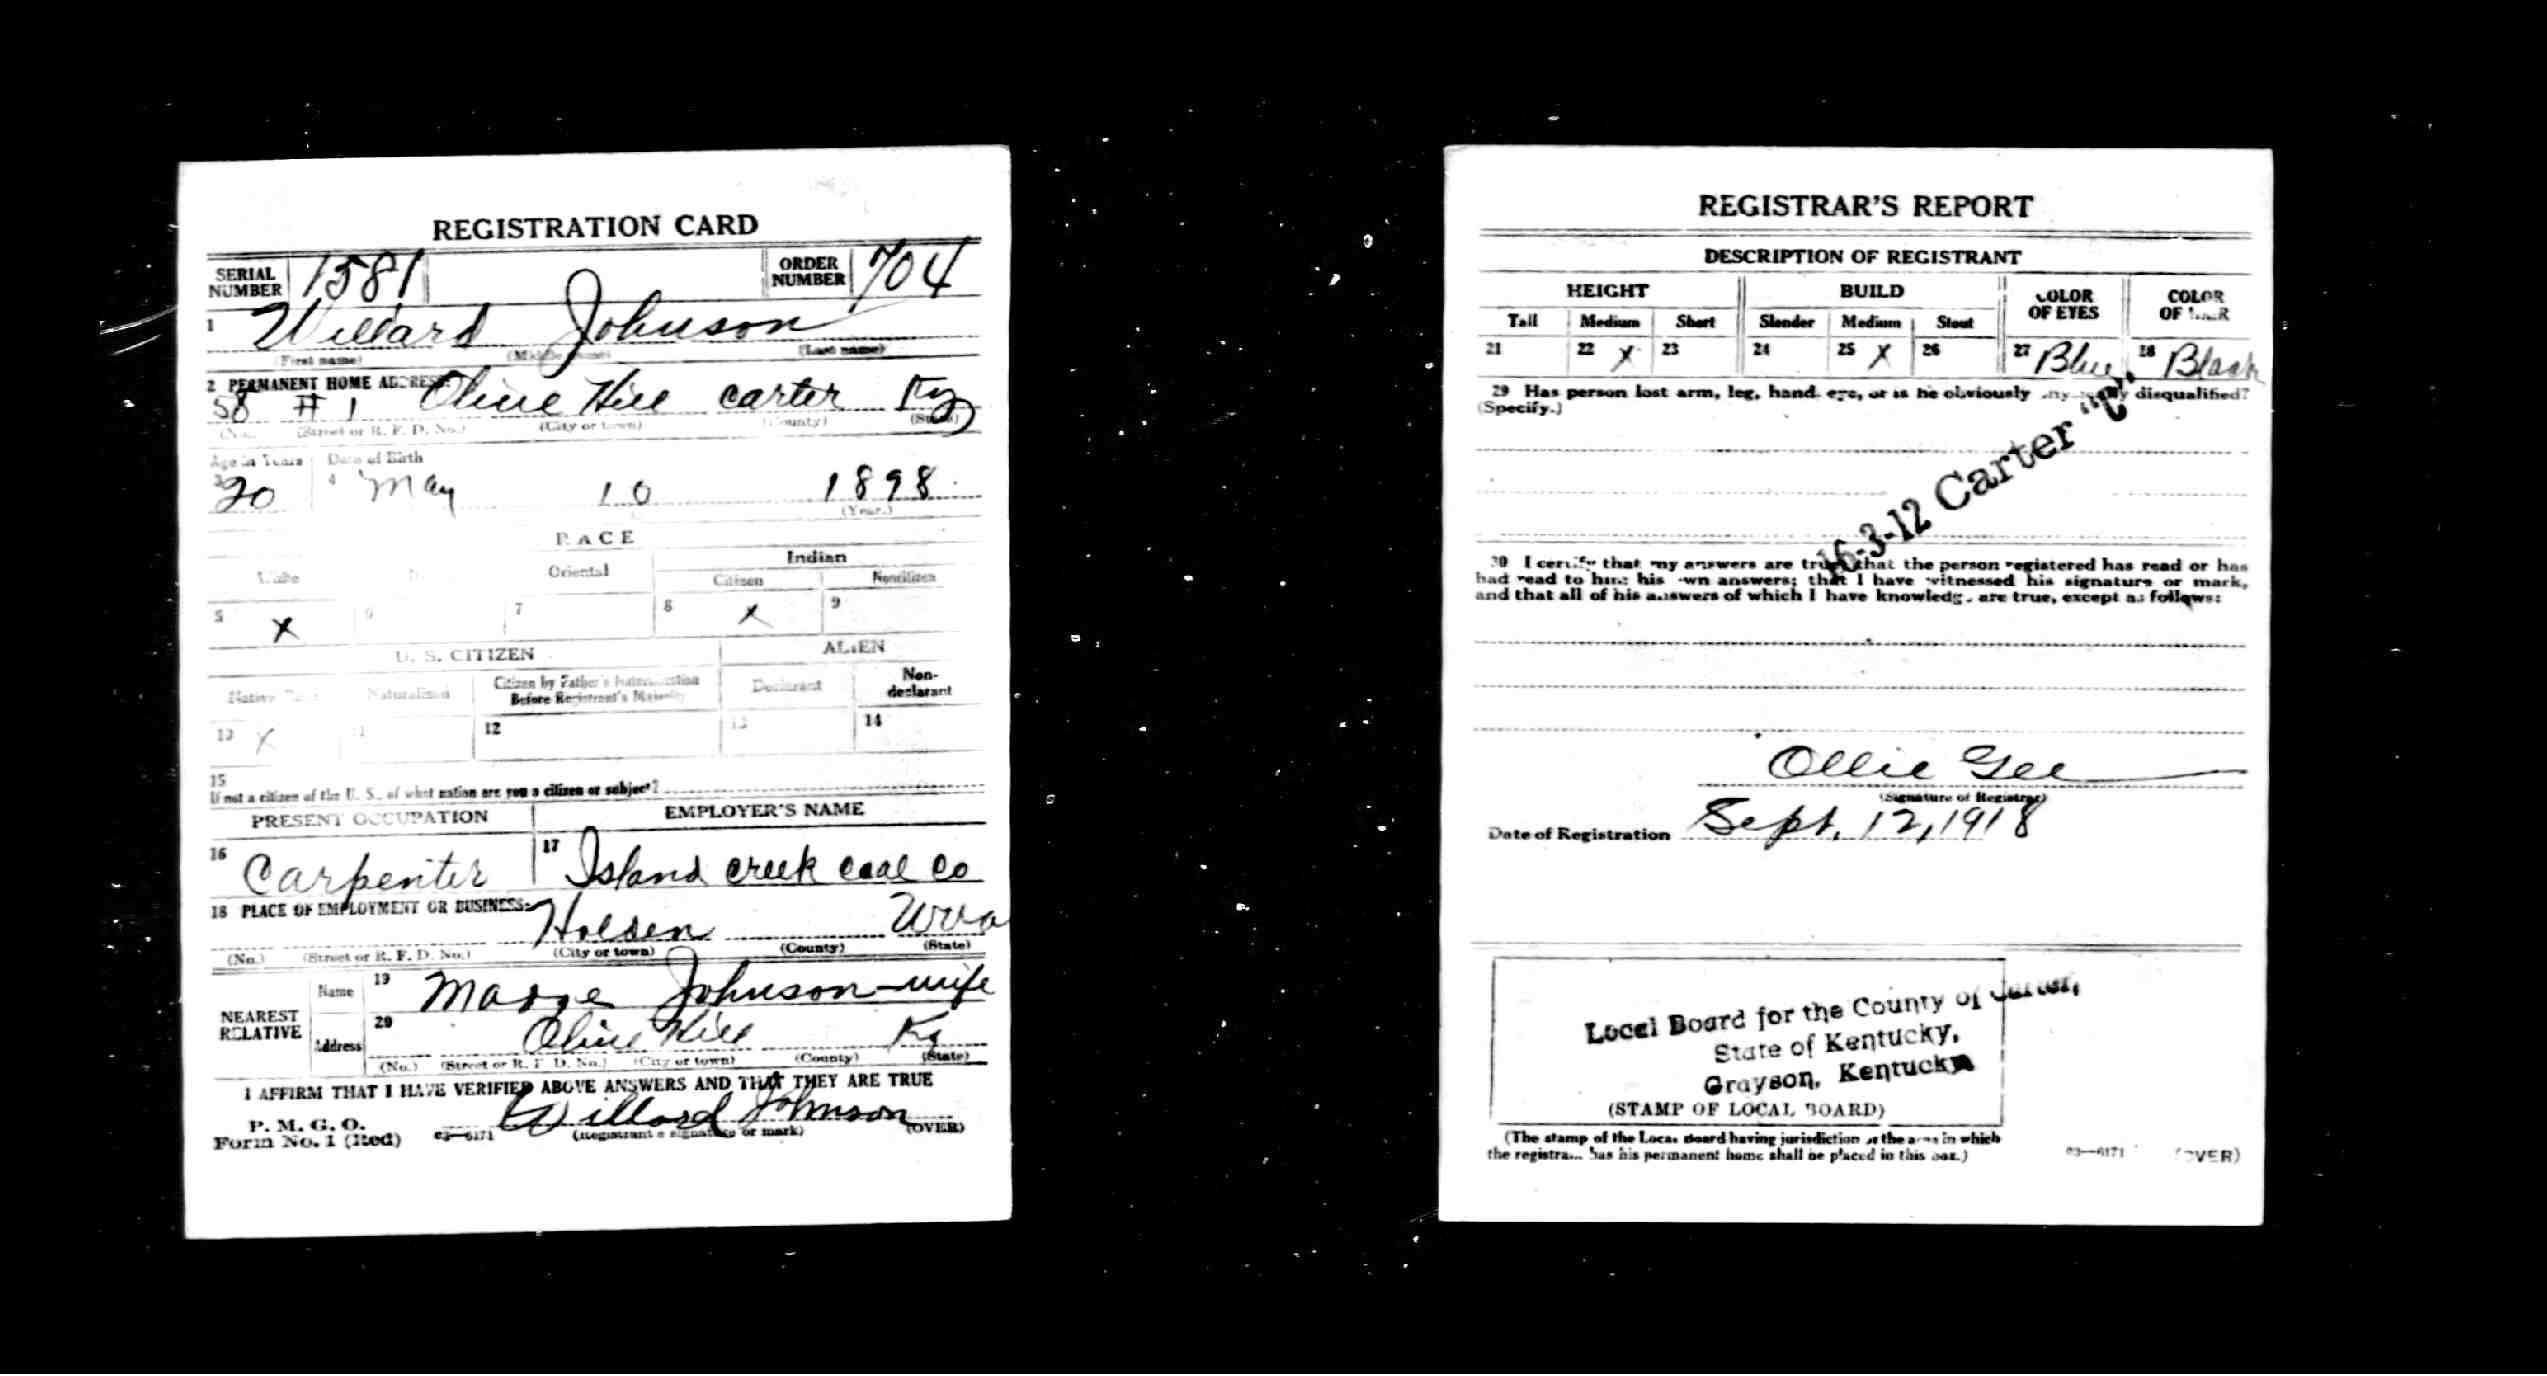 REGISTRATION CARD
SERIAL NUMBER 1581 ORDER NUMBER 704
1 Willard Johnson
(First name) (Middle name) (Last name)
2 PERMANENT HOME ADDRESS:
58 # 1 Olive Hill carter Ky
(No.) (Street or R. F. D. No.) (City or town) (County) (State)
Age in Years Date of Birth
3 20 4 May 10 1898
(Year.)
RACE
White Oriental Indian
Citizen Noncitizen
5 X 6 7 8 X 9
U. S. CITIZEN ALIEN
Native Naturalized Citizen by Father's Naturalization Before Registrant's Majority Declarant Non-declarant
10 X 11 12 13 14
15
If not a citizen of the U. S., of what nation are you a citizen or subject?
PRESENT OCCUPATION EMPLOYER'S NAME
16 Carpenter 17 Island creek coal co
18 PLACE OF EMPLOYMENT OR BUSINESS:
Holden Wva
(No.) (Street or R. F. D. No.) (City or town) (County) (State)
NEAREST RELATIVE
Name 19 Johnson-wife
Address 20 Olive Hill Ky
(No.) (Street or R. F. D. No.) (City or town) (County) (State)
I AFFIRM THAT I HAVE VERIFIED ABOVE ANSWERS AND THAT THEY ARE TRUE
P. M. G. O.
Form No. 1 (Red) 03—6171 Willard Johnson
(Registrant's signature or mark) (OVER)
REGISTRAR'S REPORT
DESCRIPTION OF REGISTRANT
HEIGHT BUILD COLOR OF EYES COLOR OF HAIR
Tall Medium Short Slender Medium Stout
21 22 X 23 24 25 X 26 27 Blue 28 Black
29 Has person lost arm, leg, hand, eye, or is he obviously physically disqualified?
(Specify.)
16-3-12 Carter "C"
30 I certify that my answers are true; that the person registered has read or has
had read to him his own answers; that I have witnessed his signature or mark,
and that all of his answers of which I have knowledge are true, except as follows:
Ollie Gee
(Signature of Registrar)
Date of Registration Sept. 12, 1918
Local Board for the County of Carter,
State of Kentucky,
Grayson, Kentucky
(STAMP OF LOCAL BOARD)
(The stamp of the Local Board having jurisdiction of the area in which
the registrant has his permanent home shall be placed in this box.)
03—6171 (OVER)